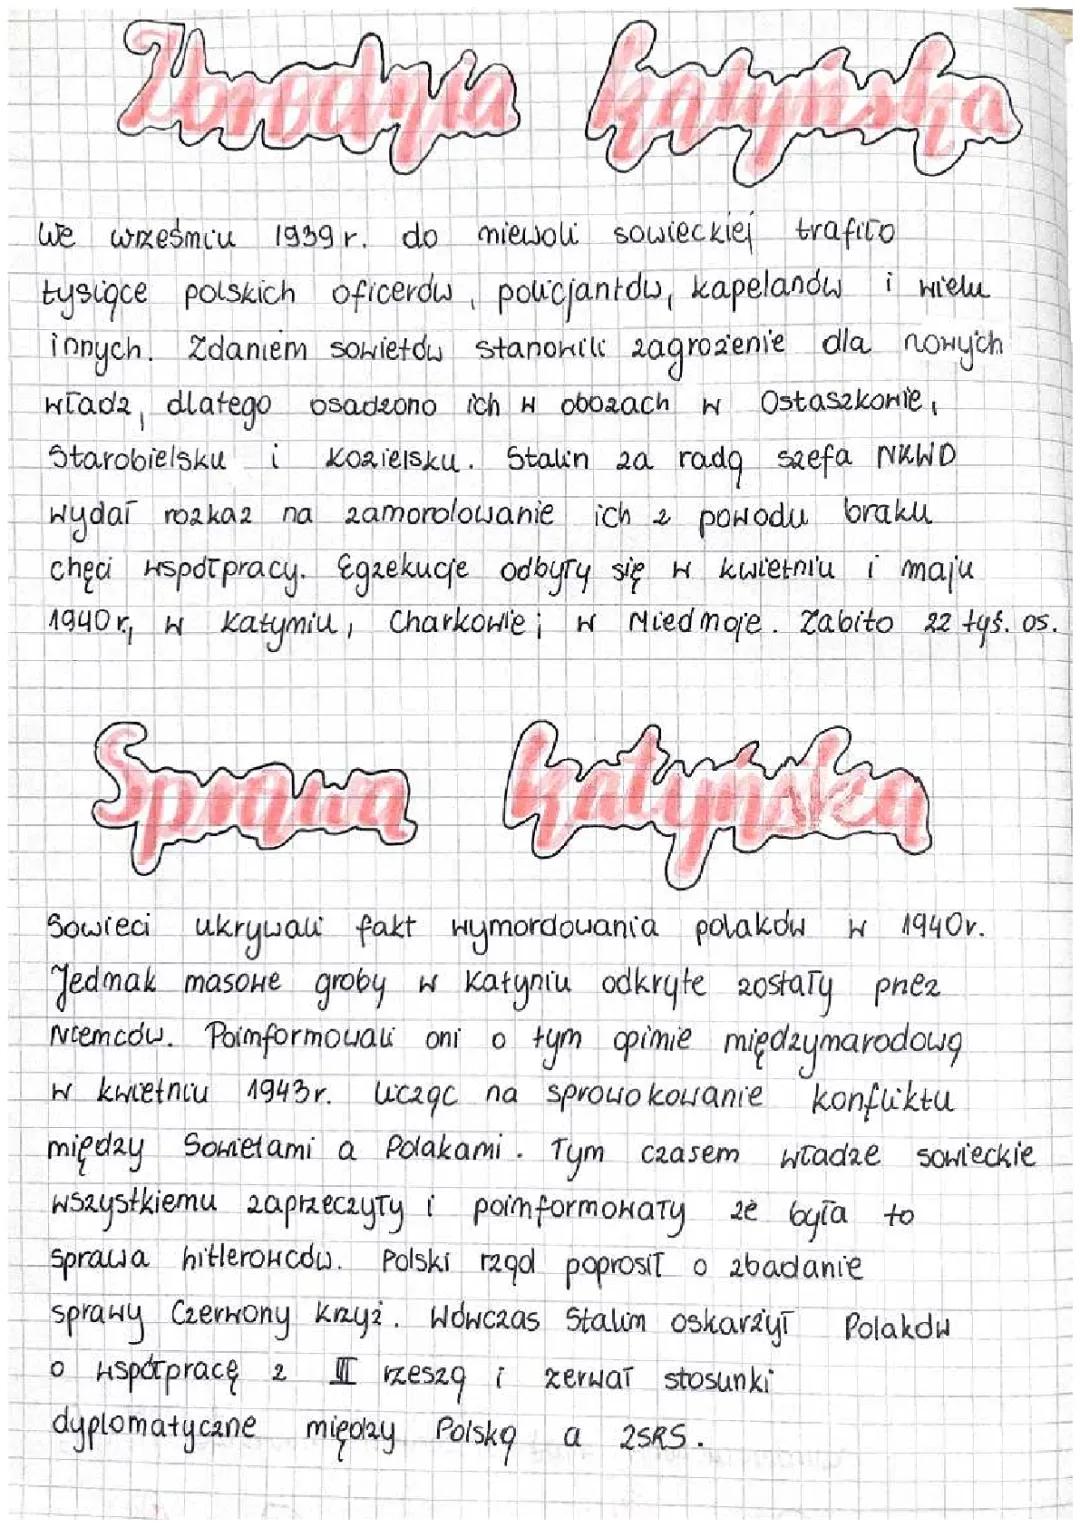 Zbrodnia katyńska
We wrześniu 1939 r. do niewoli sowieckiej trafiło
tysiące polskich oficerów, policjantów, kapelanów i wielu
innych. Zdaniem sowietów stanowili zagrożenie dla nowych
władz, dlatego osadzono ich w obozach w Ostaszkowie,
Starobielsku i Kozielsku. Stalin za radą szefa NKWD
wydał rozkaz na zamorolowanie ich z powodu braku
chęci współpracy. Egzekucje odbyły się w kwietniu i maju
1940 r, w Katyniu, Charkowie i w Miednoje. Zabito 22 tyś. os.
Sprawa katyńska
Sowieci ukrywali fakt wymordowania polaków w 1940r.
Jednak masowe groby w Katyniu odkryte zostały przez
Niemców. Poinformowali oni o tym opinie międzynarodową
w kwietniu 1943r. licząc na sprowokowanie konfliktu
między Sowietami a Polakami. Tym czasem władze sowieckie
wszystkiemu zaprzeczyły i poinformowały że była to
sprawa hitlerowców. Polski rząd poprosił o zbadanie
sprawy Czerwony Krzyż. Wówczas Stalin oskarżył Polaków
o współpracę z III rzeszą i zerwał stosunki
dyplomatyczne między Polską a ZSRS.